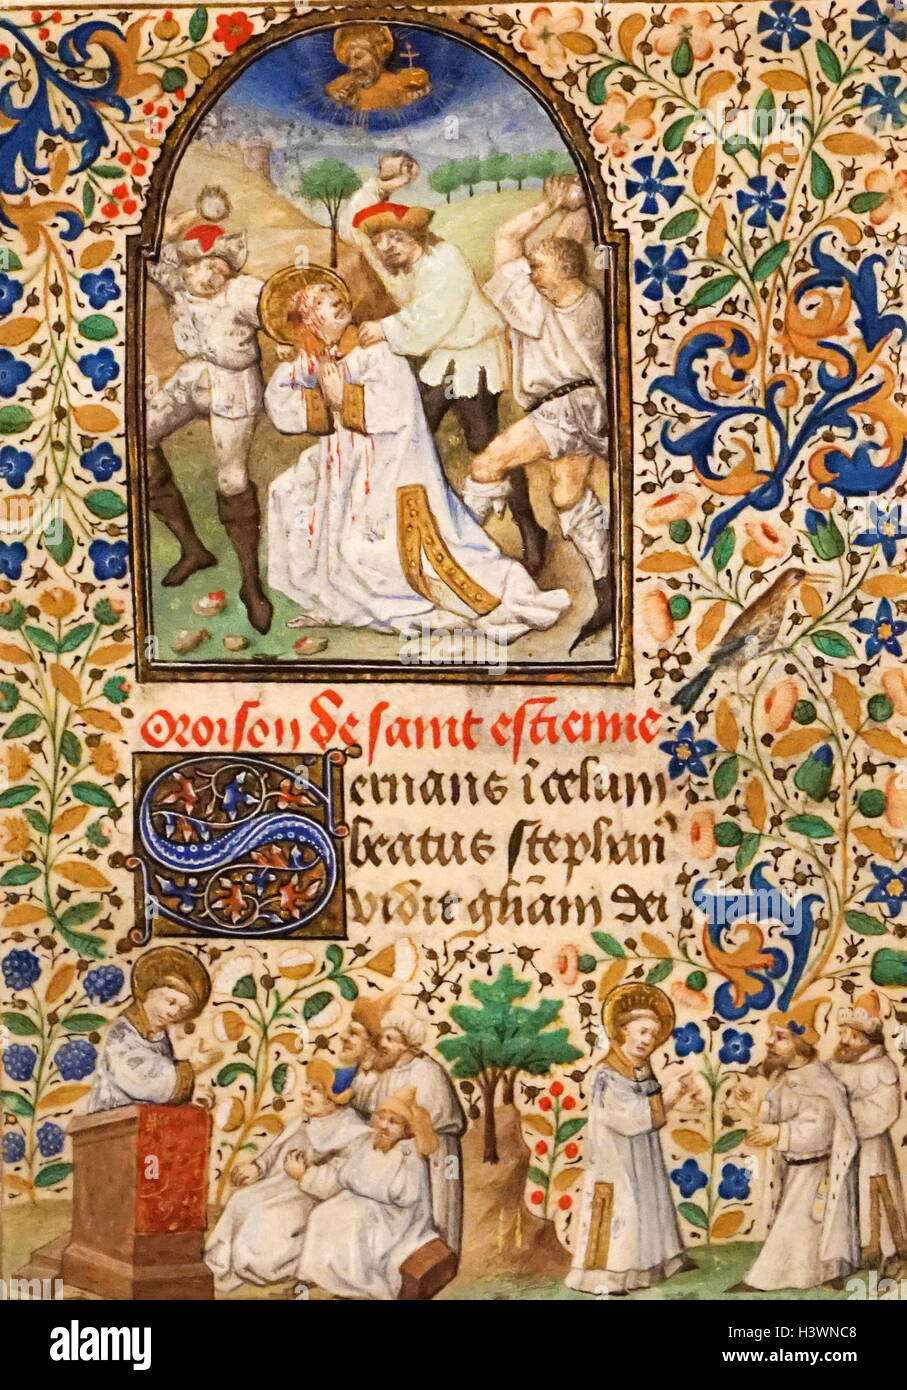 Oroison de saint estienne
Sernans i celum
beatus stephan'
vidit gl̄iam dei
a alamy stock photo
alamy
Image ID: H3WNC8
www.alamy.com